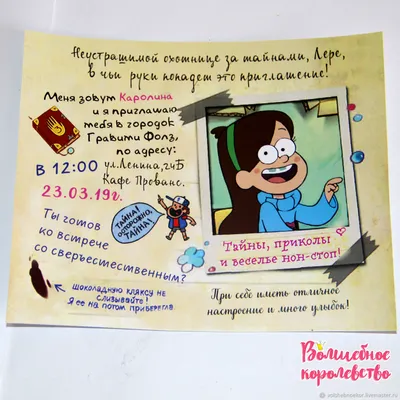 Неустрашимой охотнице за тайнами, Лере,
в чьи руки попадет это приглашение!
Меня зовут Каролина
и я приглашаю
тебя в городок
Гравити Фолз,
по адресу:
ул.Ленина,24Б
Кафе Прованс.
В 12:00
23.03.19г.
ТАЙНА!
ОСТОРОЖНО,
ТАЙНА!
Ты готов
ко встрече
со сверхъестественным?
Шоколадную кляксу не
слизывайте!
Я её на потом приберегла.
Тайны, приколы
и веселье нон-стоп!
При себе иметь отличное
настроение и много улыбок!
Волшебное
королевство